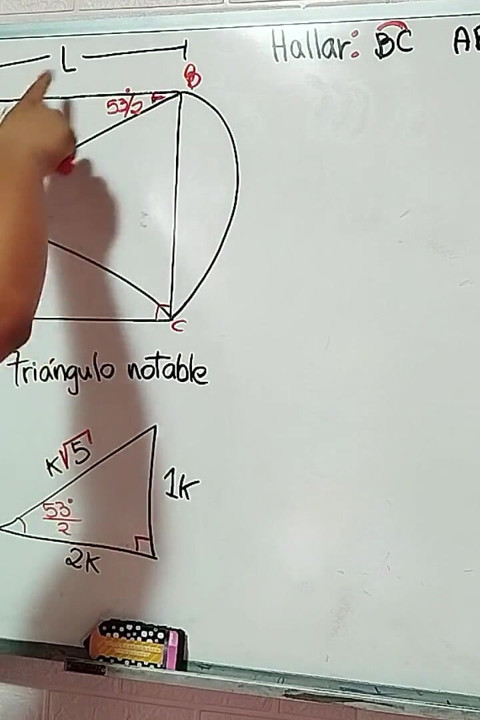 Hallar: BC
L
B
53°/2
C
triángulo notable
K√5
1K
53°
2
2K